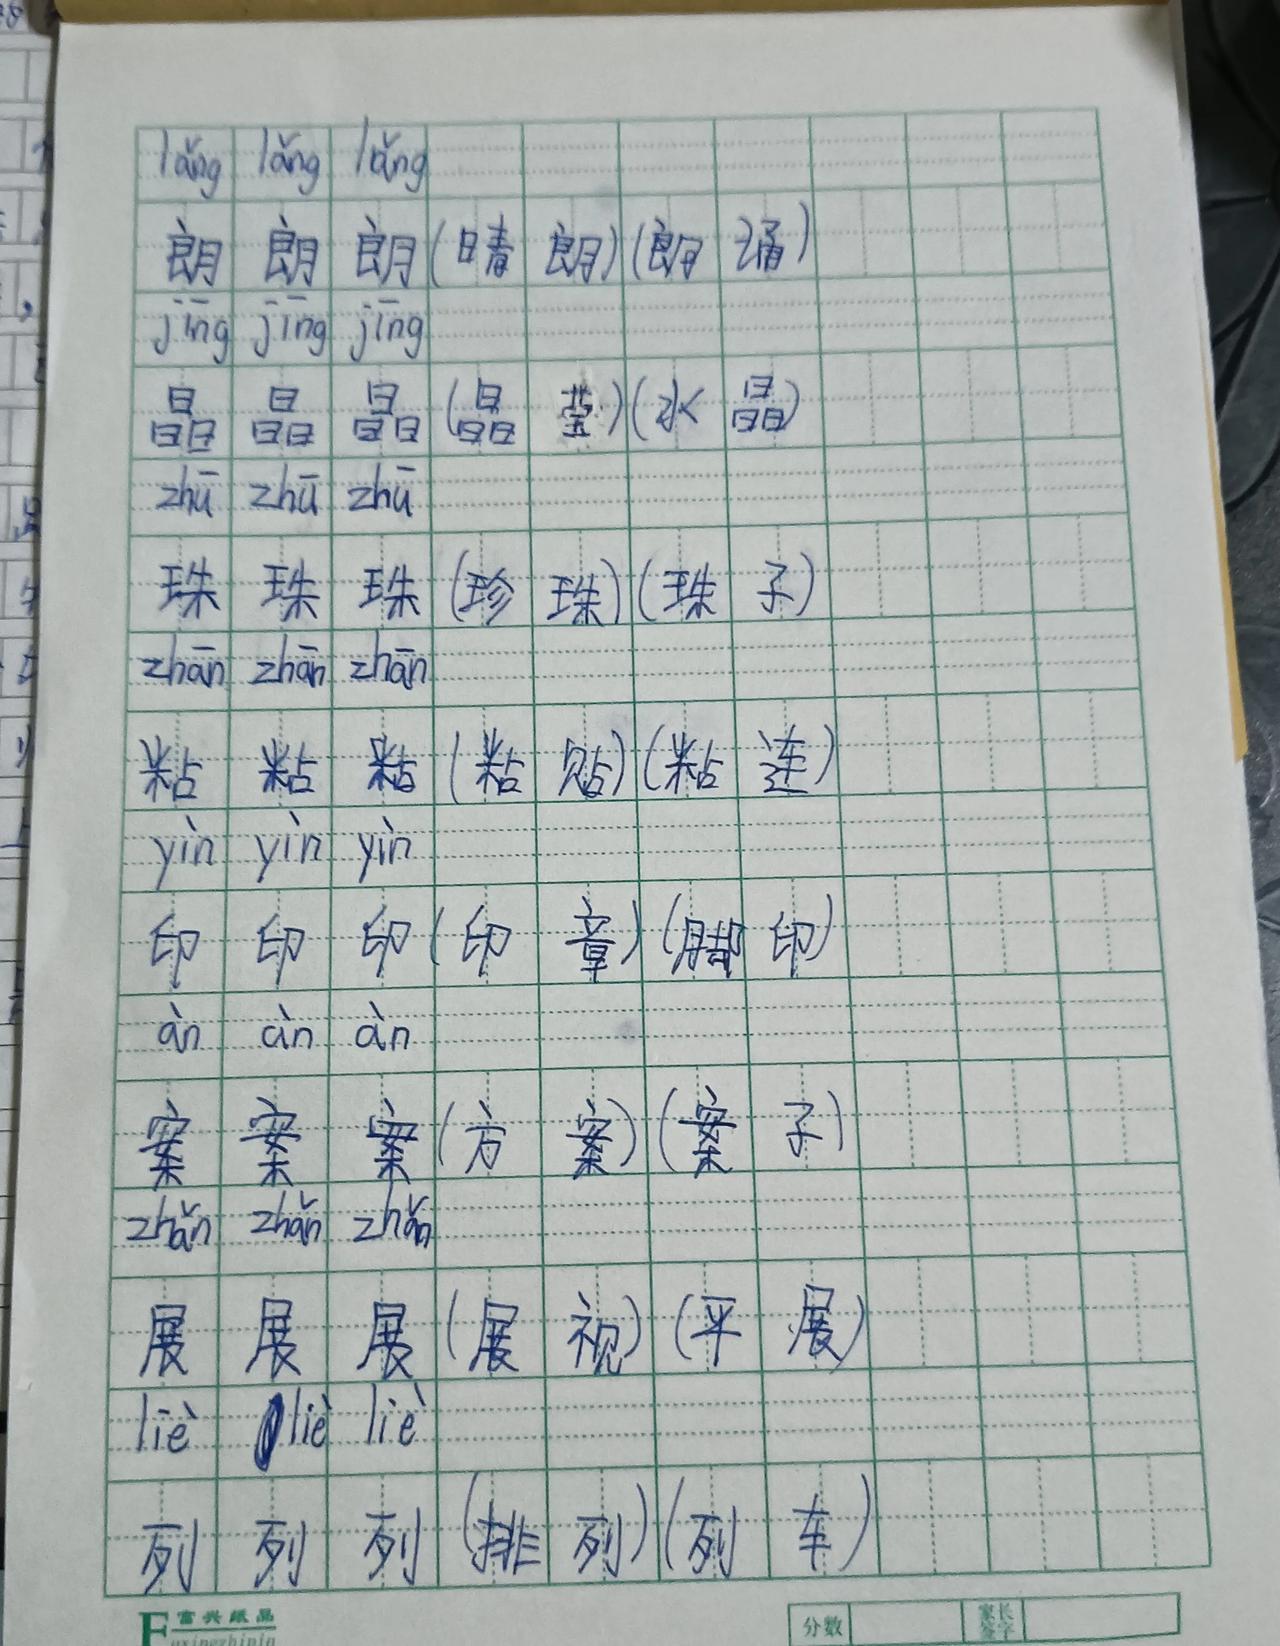 lǎng lǎng lǎng
朗 朗 朗 (晴 朗) (朗 诵)
jīng jīng jīng
晶 晶 晶 (晶 莹) (水 晶)
zhū zhū zhū
珠 珠 珠 (珍 珠) (珠 子)
zhān zhān zhān
粘 粘 粘 (粘 贴) (粘 连)
yìn yìn yìn
印 印 印 (印 章) (脚 印)
àn àn àn
案 案 案 (方 案) (案 子)
zhǎn zhǎn zhǎn
展 展 展 (展 视) (平 展)
liè liè liè
列 列 列 (排 列) (列 车)
富兴纸品
Fuxingzhipin
分数 家长签字